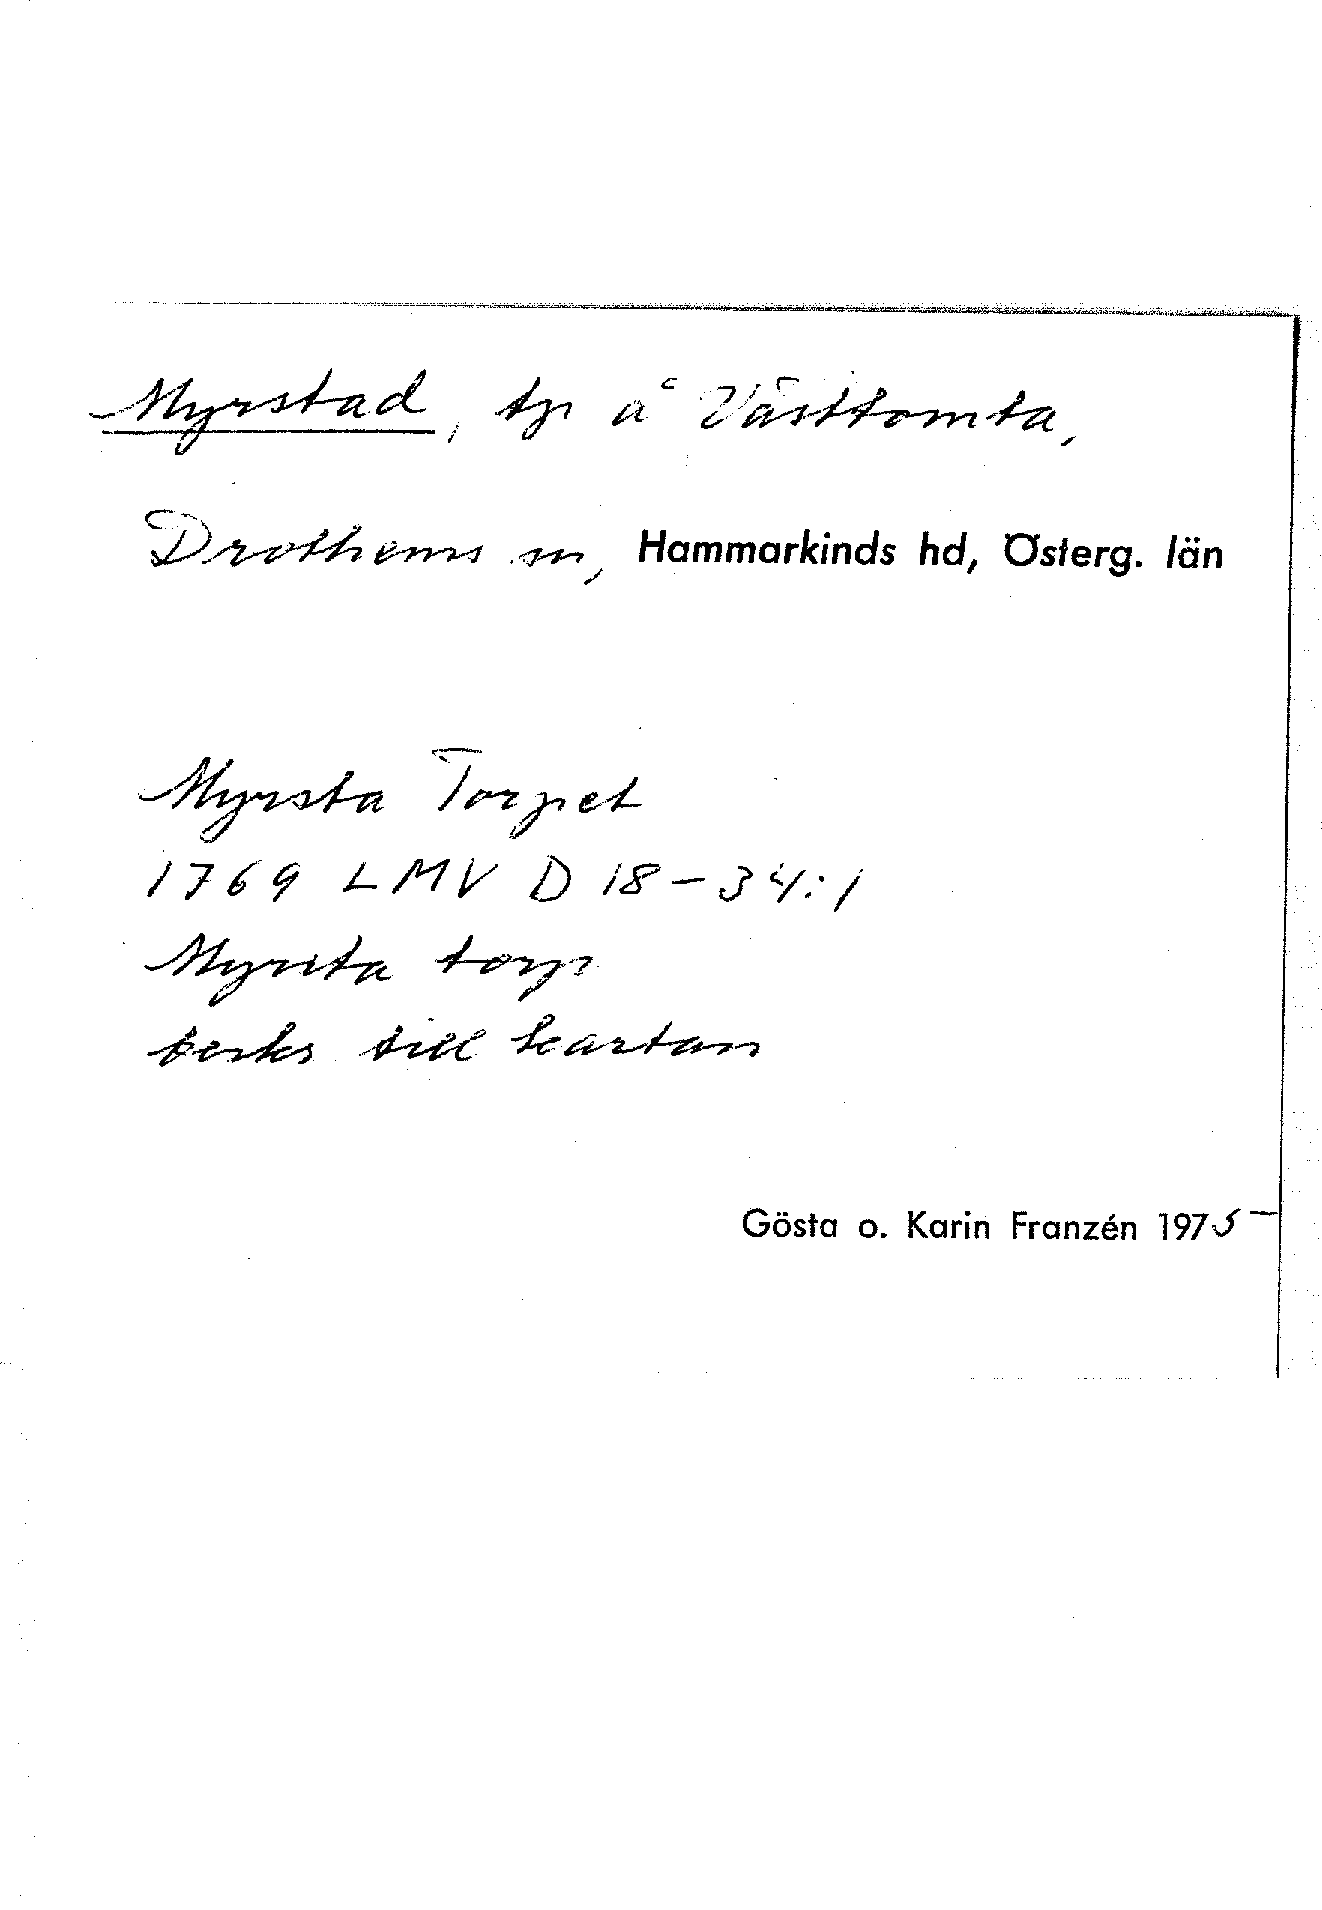 Myrstad, tp å Västtomta,
Drothems sn, Hammarkinds hd, Österg. län
Myrsta Torpet
1769 LMV D 18-34:1
Myrsta torp
beskr till kartan
Gösta o. Karin Franzén 1975